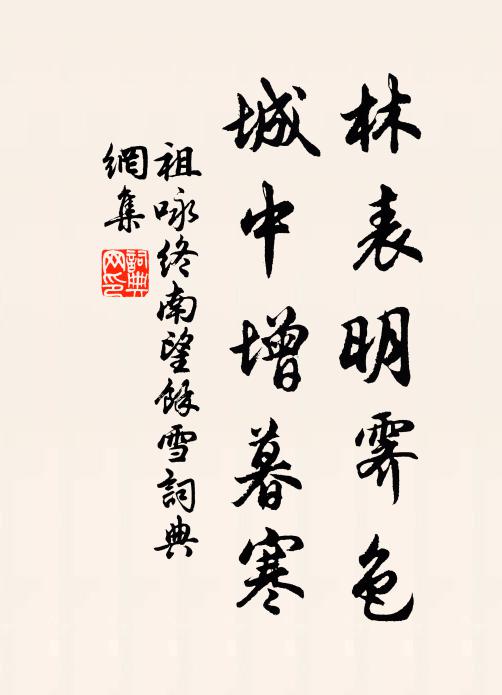 林表明霽色
城中增暮寒
祖咏终南望餘雪詞典
網集
詞典
网印